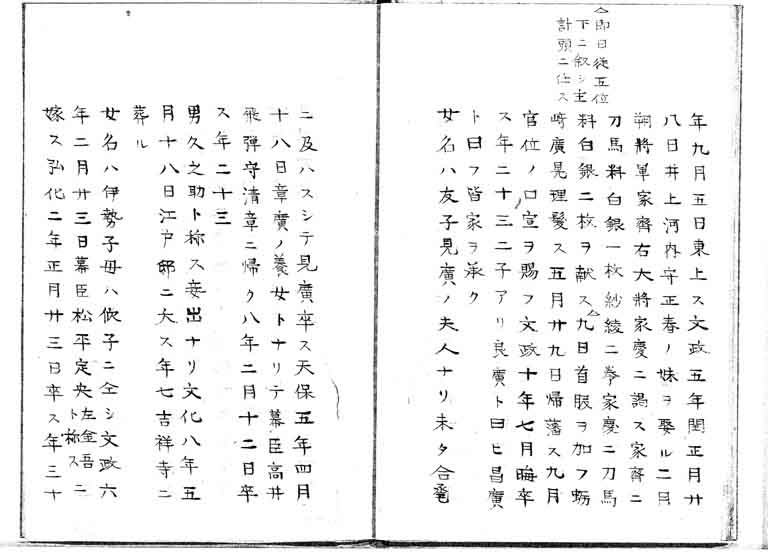 △即日従五位
下ニ叙シ主
計頭ニ任ス
年九月五日東上ス文政五年閏正月廿
八日井上河内守正春ノ妹ヲ娶ル二月
朔将軍家齊右大将家慶ニ謁ス家齊ニ
刀馬料白銀一枚紗綾二巻家慶ニ刀馬
料白銀二枚ヲ献ス△九日首服ヲ加フ蛎
崎廣晃理髪ス五月廿九日帰藩ス九月
官位ノ口宣ヲ賜フ文政十年七月晦卒
ス年二十三二子アリ良廣ト曰ヒ昌廣
ト曰フ皆家ヲ承ク
女名ハ友子見廣ノ夫人ナリ未タ合卺
ニ及ハスシテ見廣卒ス天保五年四月
十八日章廣ノ養女トナリテ幕臣高井
飛弾守清章ニ帰ク八年二月十二日卒
ス年二十三
男久之助ト称ス妾出ナリ文化八年五
月十八日江戸邸ニ夭ス年七吉祥寺ニ
葬ル
女名ハ伊勢子母ハ俊子ニ仝シ文政六
年二月廿三日幕臣松平定央左金吾ト称スニ
嫁ス弘化二年正月廿三日卒ス年三十